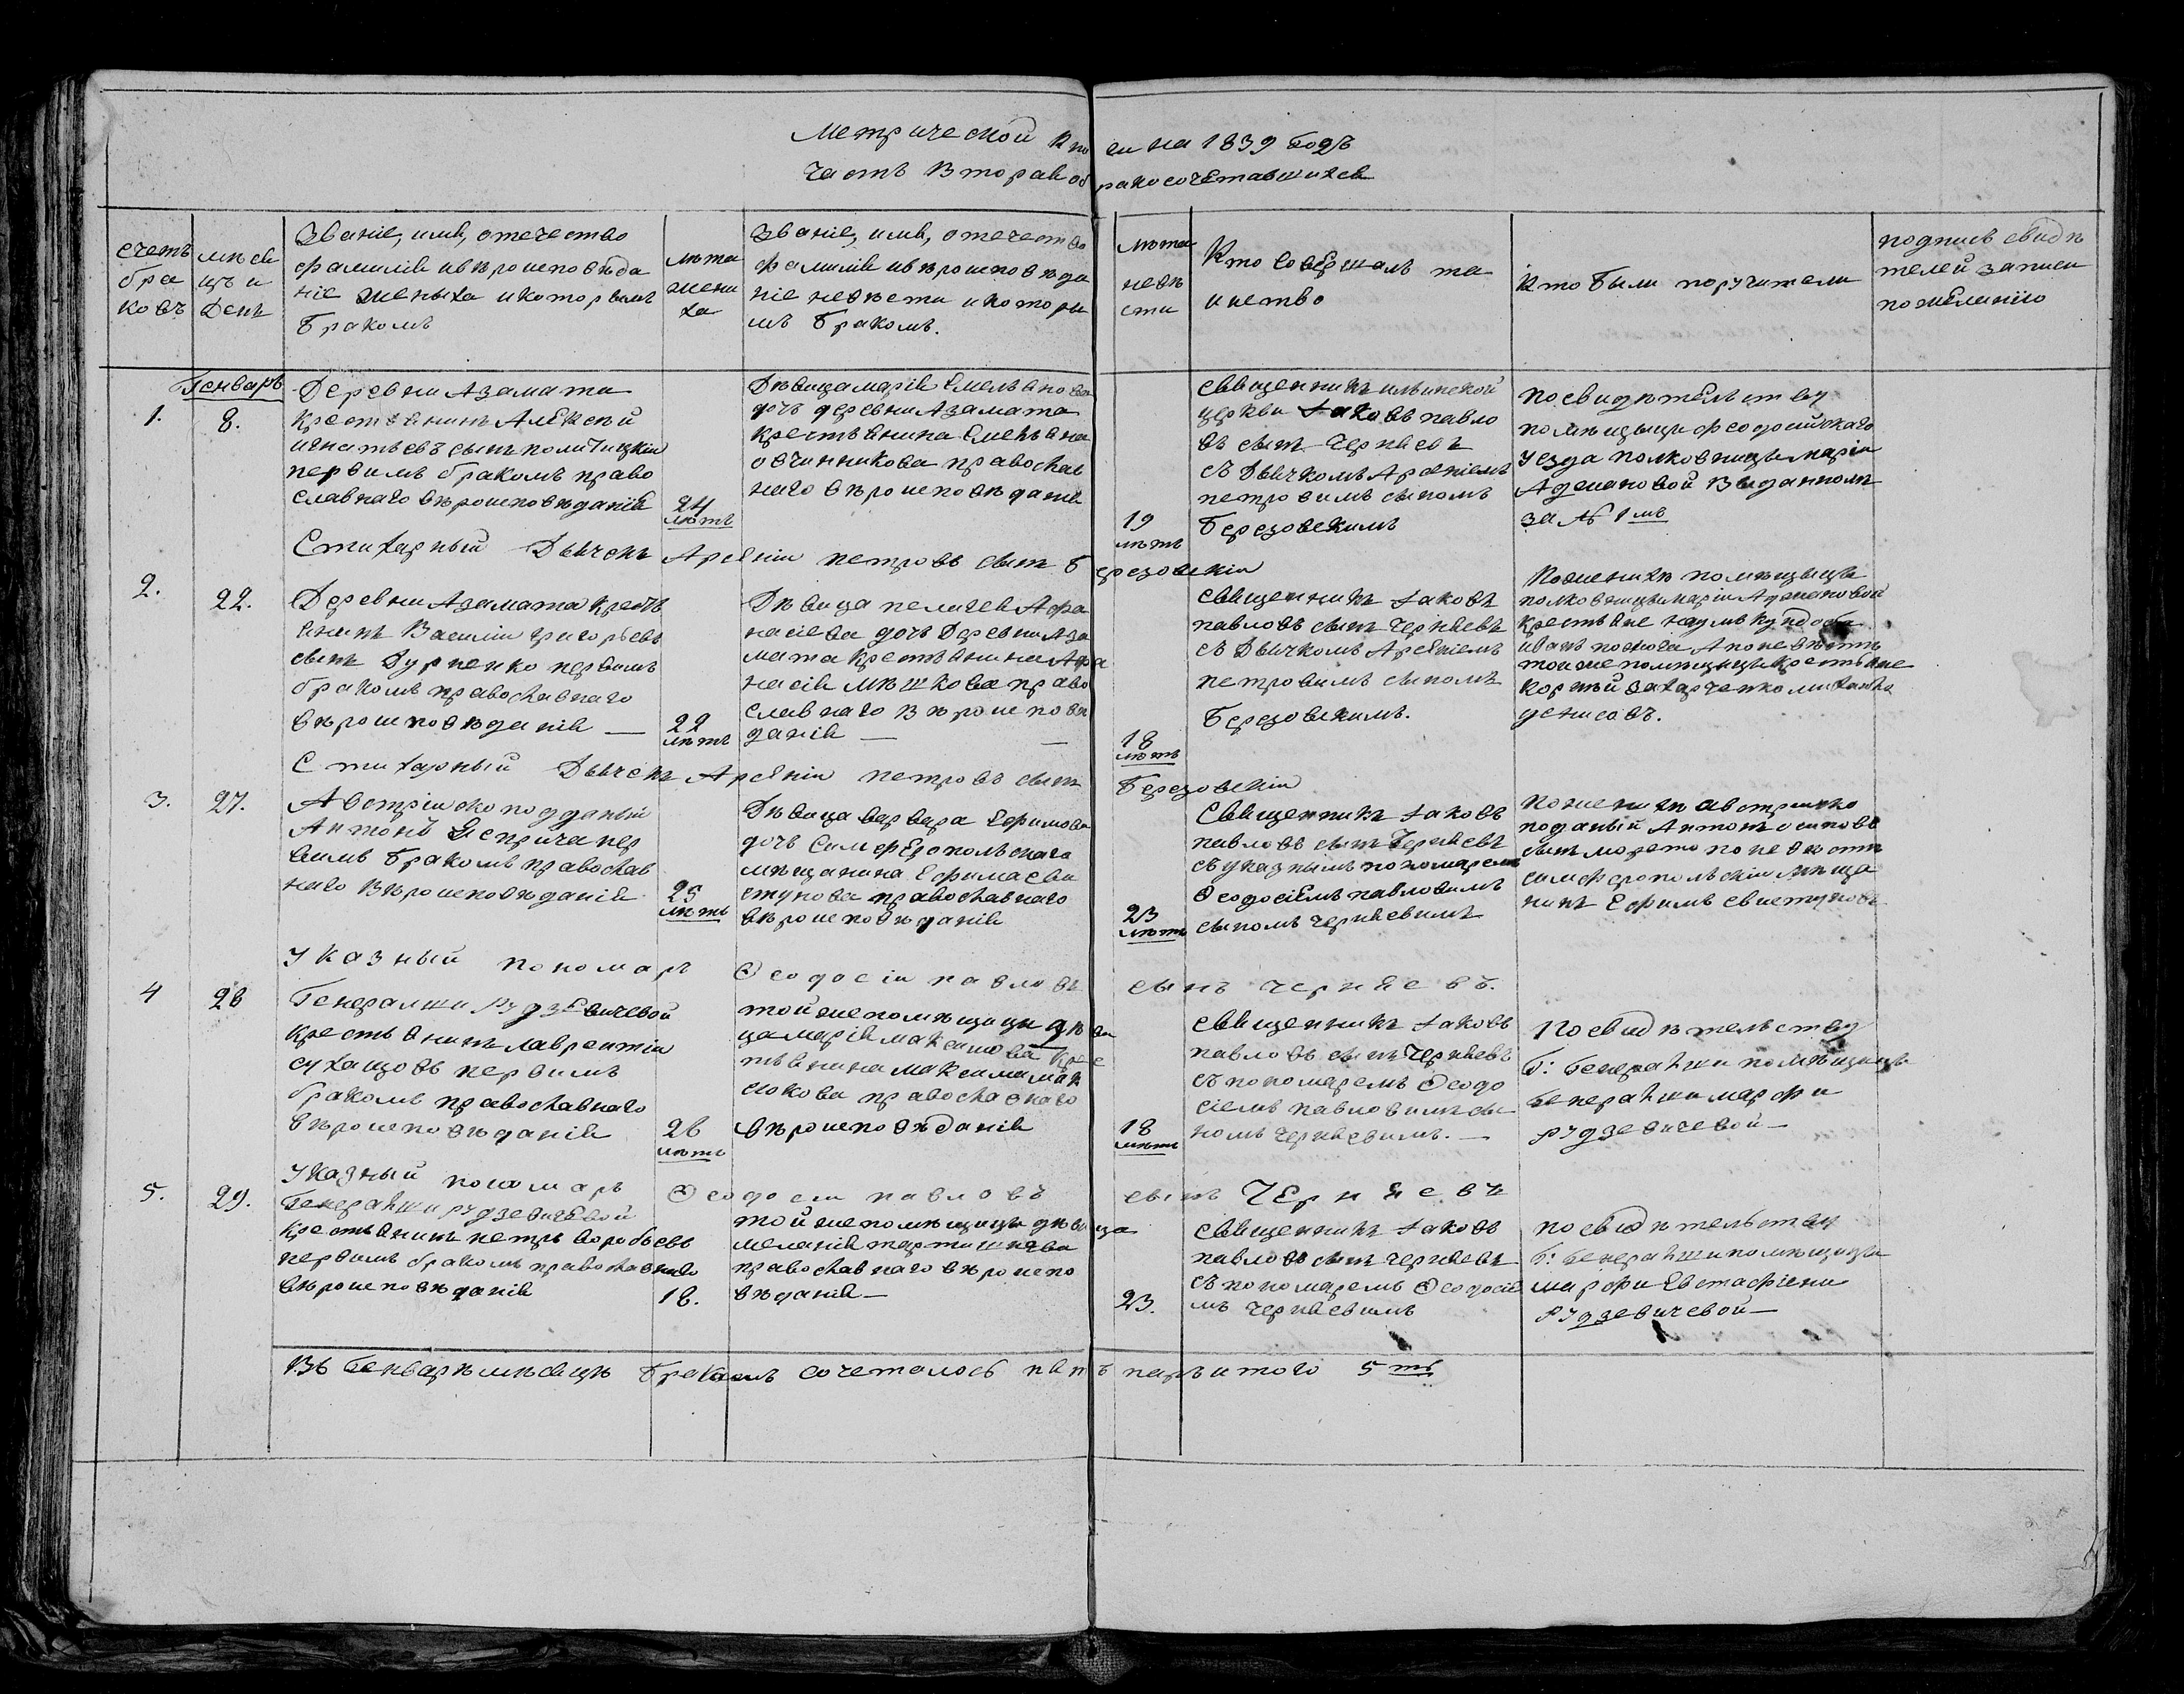 Метрической кни ги на 1839 Годъ
Часть Вторая об ракосочетавшихся
счетъ бра ковъ
мѣся цъ и День
Званіе, имя, отечество
фамилія ивѣроисповѣда
ніе жениха икоторымъ
бракомъ
лѣта жени ха
Званіе, имя, отечество
фамилія ивѣроисповѣда
ніе невѣсты икоторы
мъ бракомъ.
лѣта невѣ сты
Кто совершалъ та
инство
Кто были поручители
подпись свидѣ
телей записи
пожеланію
Генварь
1.
8.
Деревни Азамата
крестьянинъ Алексѣй
игнатьевъ сынъ
первымъ бракомъ право
славнаго вѣроисповѣданія
24
лѣтъ
Дѣвица марія Емельянова
дочь деревни Азамата
крестьянина Емельяна
овчинникова православ
наго вѣроисповѣданія
19
лѣтъ
Священникъ ильинской
церкви Іаковъ павло
въ сынъ Черняевъ
съ Дьячкомъ Арсеніемъ
петровымъ сыномъ
Березовскимъ
по свидѣтельству
помѣщицы феодосійскаго
уезда полковницы маріи
Адамановой выданномъ
за № 1мъ
Стихарный Дьячекъ Арсеній петровъ сынъ Березовскій
2.
22.
Деревни Азамата крестьь
янинъ Василій григорьевъ
сынъ Дурненко первымъ
бракомъ православнаго
вѣроисповѣданія —
22
лѣтъ
Дѣвица пелагея Афа
насіева дочь Деревни Аза
мата крестьянина Афа
насія мѣшкова право
славнаго Вѣроисповѣ
данія — —
18
лѣтъ
Священникъ Іаковъ
павловъ сынъ Черняевъ
съ Дьячкомъ Арсеніемъ
петровымъ сыномъ
Березовскимъ.
Поженихѣ помѣщицы
полковницы маріи Адамановой
крестьяне наумъ
иванъ А поневѣсте
тойже помѣщицы крестьяне
Корнѣй захарченко
денисовъ.
Стихарный Дьячекъ Арсеній петровъ сынъ Березовскій
3.
27.
Австрійскоподданый
Антонъ пер
вымъ бракомъ православ
наго вѣроисповѣданія
25
лѣтъ
Дѣвица варвара Ефимова
дочь Симферопольскаго
мѣщанина Ефима сви
стунова православнаго
вѣроисповѣданія
23
лѣтъ
Священникъ Іаковъ
павловъ сынъ Черняевъ
съ указнымъ пономаремъ
Ѳеодосіемъ павловымъ
сыномъ черняевымъ
поженихѣ австрійско
поданый Антонъ осиповъ
сынъ поневѣсте
симферопольскій мѣща
нинъ Ефимъ свистуновъ
Указный пономарь Ѳеодосій павловъ сынъ черняевъ.
4
28
Генералши Рудзевичевой
крестьянинъ лаврентій
первымъ
бракомъ православнаго
вѣроисповѣданія
26
лѣтъ
тойже помѣщицы дѣви
ца марія максимова кре
стьянина максима
православнаго
вѣроисповѣданія
18
лѣтъ
Священникъ Іаковъ
павловъ сынъ черняевъ
съ пономаремъ Ѳеодо
сіемъ павловымъ сы
номъ черняевымъ. —
По свидѣтельству
Г: Генералши помѣщицы
Генералши марфы
Рудзевичевой —
Указный пономарь Ѳеодосій павловъ сынъ Черняевъ
5.
29.
Генералши рудзевичевой
крестьянинъ петръ воробьевъ
первымъ бракомъ православнаго
вѣроисповѣданія
18.
той же помѣщицы дѣвица
меланія
православнаго вѣроиспо
вѣданія —
23.
Священникъ Іаковъ
павловъ сынъ черняевъ
съ пономаремъ Ѳеодосіе
мъ черняевымъ
по свидѣтельству
Г: Генералши помѣщицы
марфы Евстафіены
Рудзевичевой —
Въ Генварѣ мѣсяцѣ бракомъ сочеталось пять паръ итого 5ть